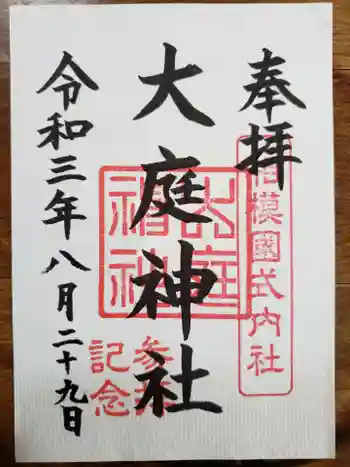 奉拝
相模國式内社
大庭神社
参拝
記念
令和三年八月二十九日